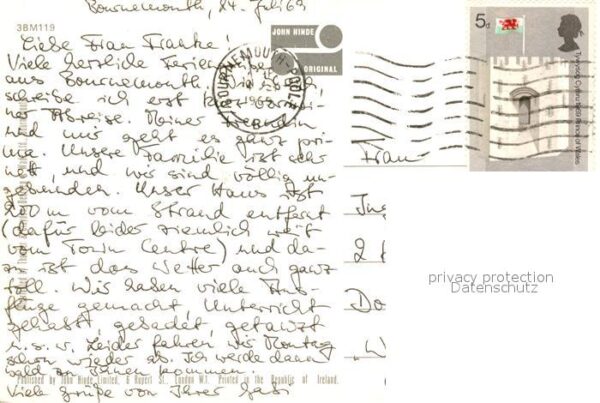 Bournemouth, 24. Juli 69
3BM119
JOHN HINDE
ORIGINAL
Liebe Frau Franke!
Viele herzliche Feriengrüße
aus Bournemouth.
schreibe ich erst kurz vor
ner Abreise. Meiner Freundin
und mir geht es ganz pri-
ma. Unsere Familie ist sehr
nett, und wir sind völlig un-
gebunden. Unser Haus ist
200 m vom Strand entfernt
(dafür leider ziemlich weit
vom Town Centre) und da-
zu ist das Wetter auch ganz
toll. Wir haben viele Aus-
flüge gemacht, Unterricht
gehabt, gebadet, getanzt
u.s.w. Leider fahren wir Montag
schon wieder ab. Ich werde dann
bald zu Ihnen kommen.
Viele Grüße von Ihrer Gabi
Published by John Hinde Limited, 6 Rupert St., London W.1. Printed in the Republic of Ireland.
5d
Tywysog Cymru 1969 Prince of Wales
BOURNEMOUTH POOLE
Frau
2
privacy protection
Datenschutz